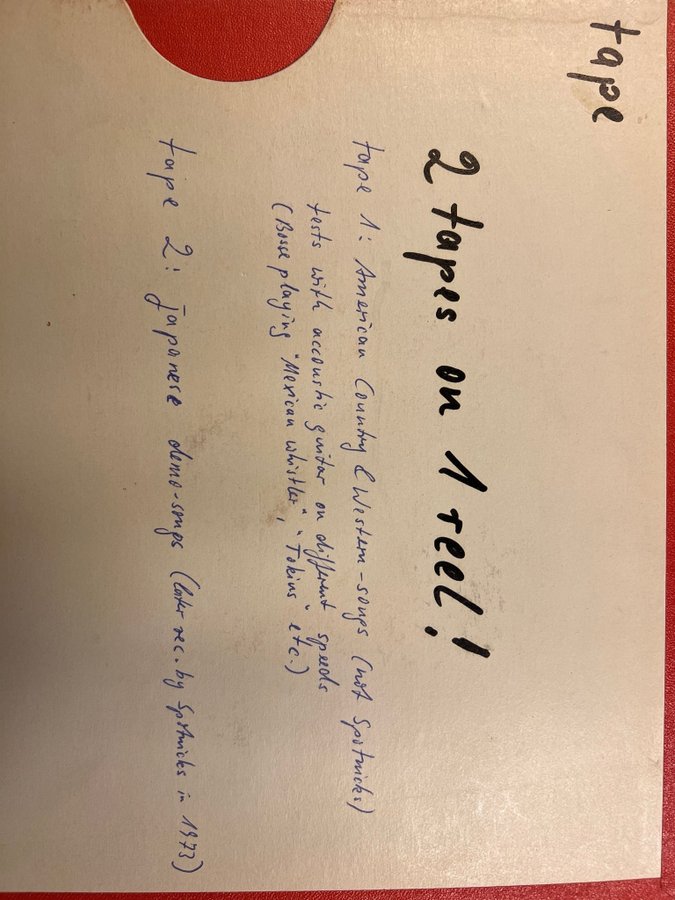 tape
2 tapes on 1 reel!
tape 1: American Country & Western-songs (not Spotnicks)
tests with accoustic guitar on different speeds
(Bosse playing "Mexican whistler", "Tokius" etc.)
tape 2: Japanese demo-songs (later rec. by Spotnicks in 1973)